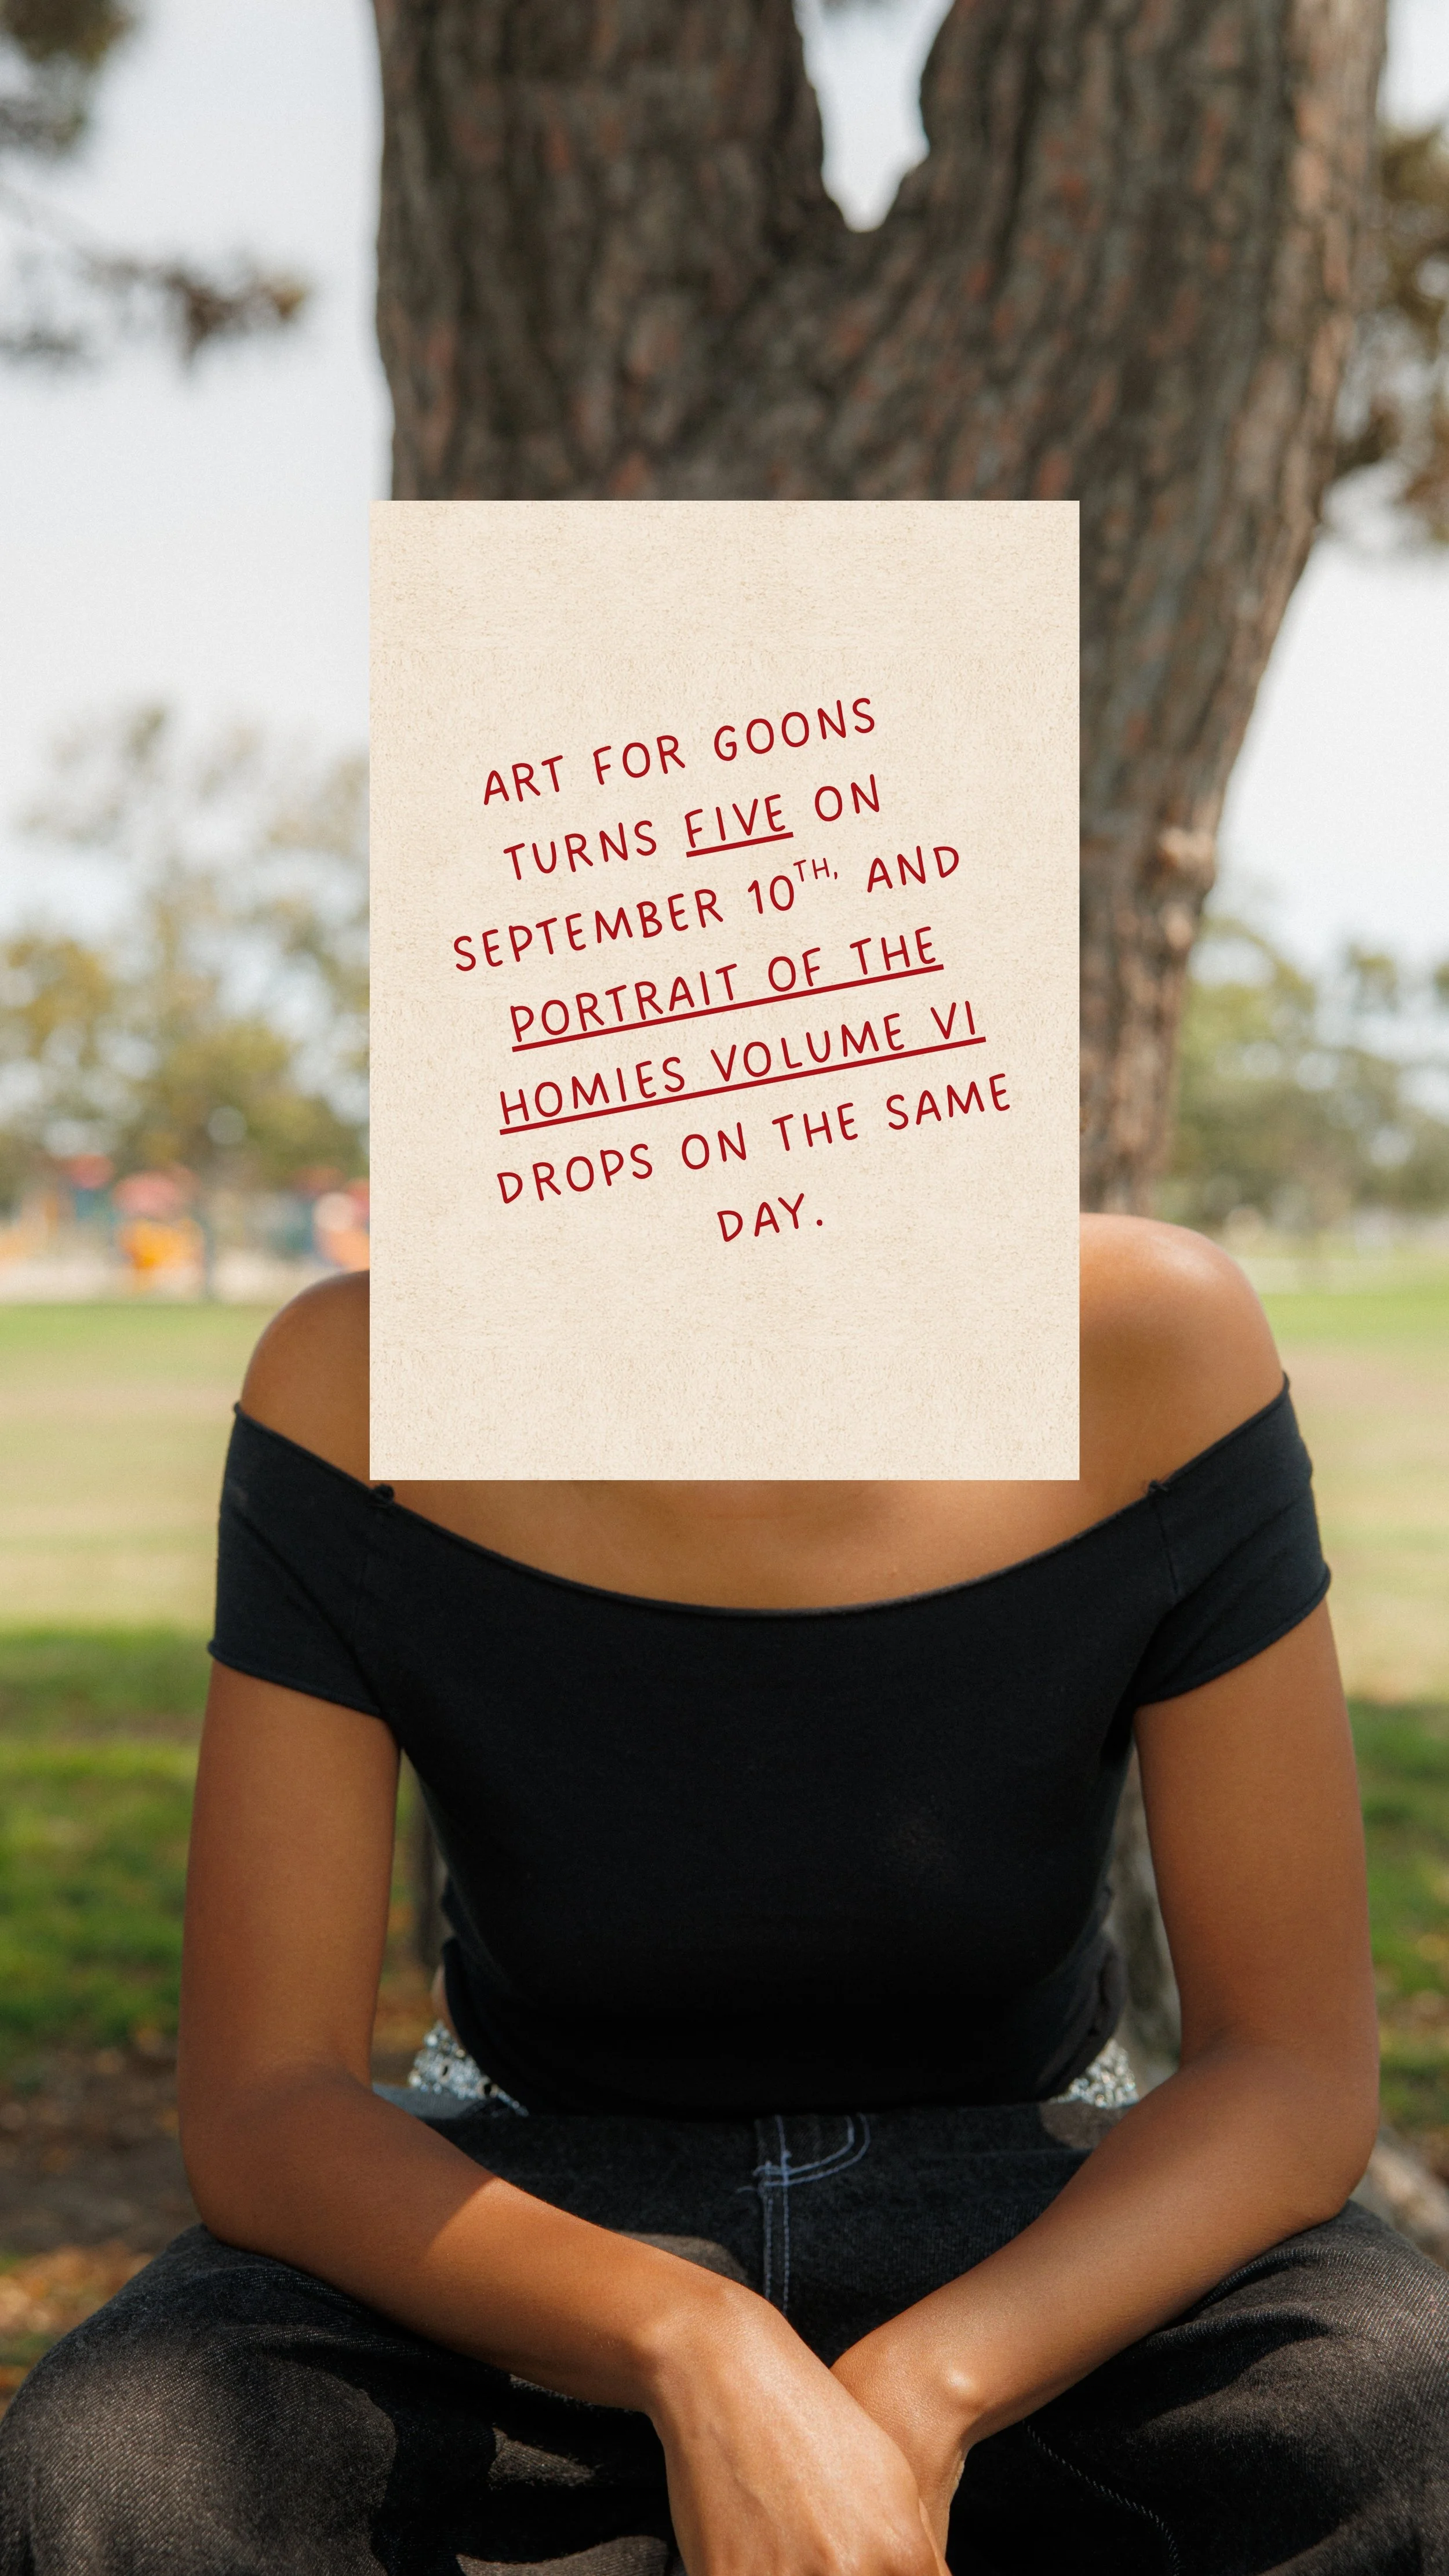 ART FOR GOONS
TURNS FIVE ON
SEPTEMBER 10TH, AND
PORTRAIT OF THE
HOMIES VOLUME VI
DROPS ON THE SAME
DAY.